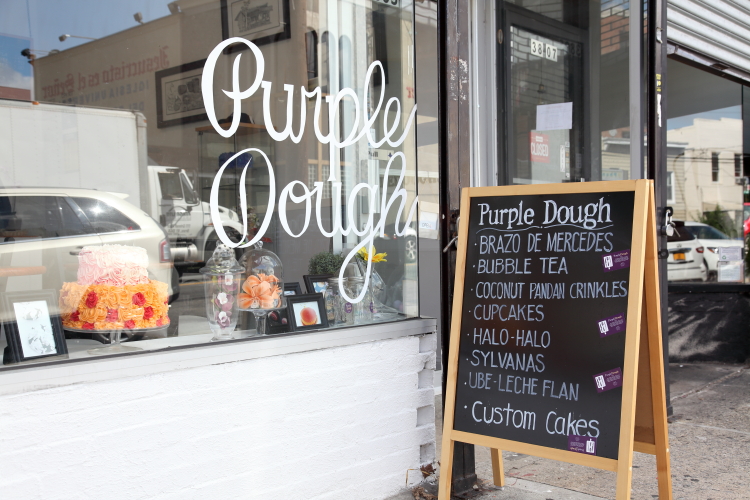 Purple
Dough
Jesucristo es el Señor
38-07
CLOSED
Purple Dough
· BRAZO DE MERCEDES
· BUBBLE TEA
· COCONUT PANDAN CRINKLES
· CUPCAKES
· HALO-HALO
· SYLVANAS
· UBE-LECHE FLAN
· Custom Cakes